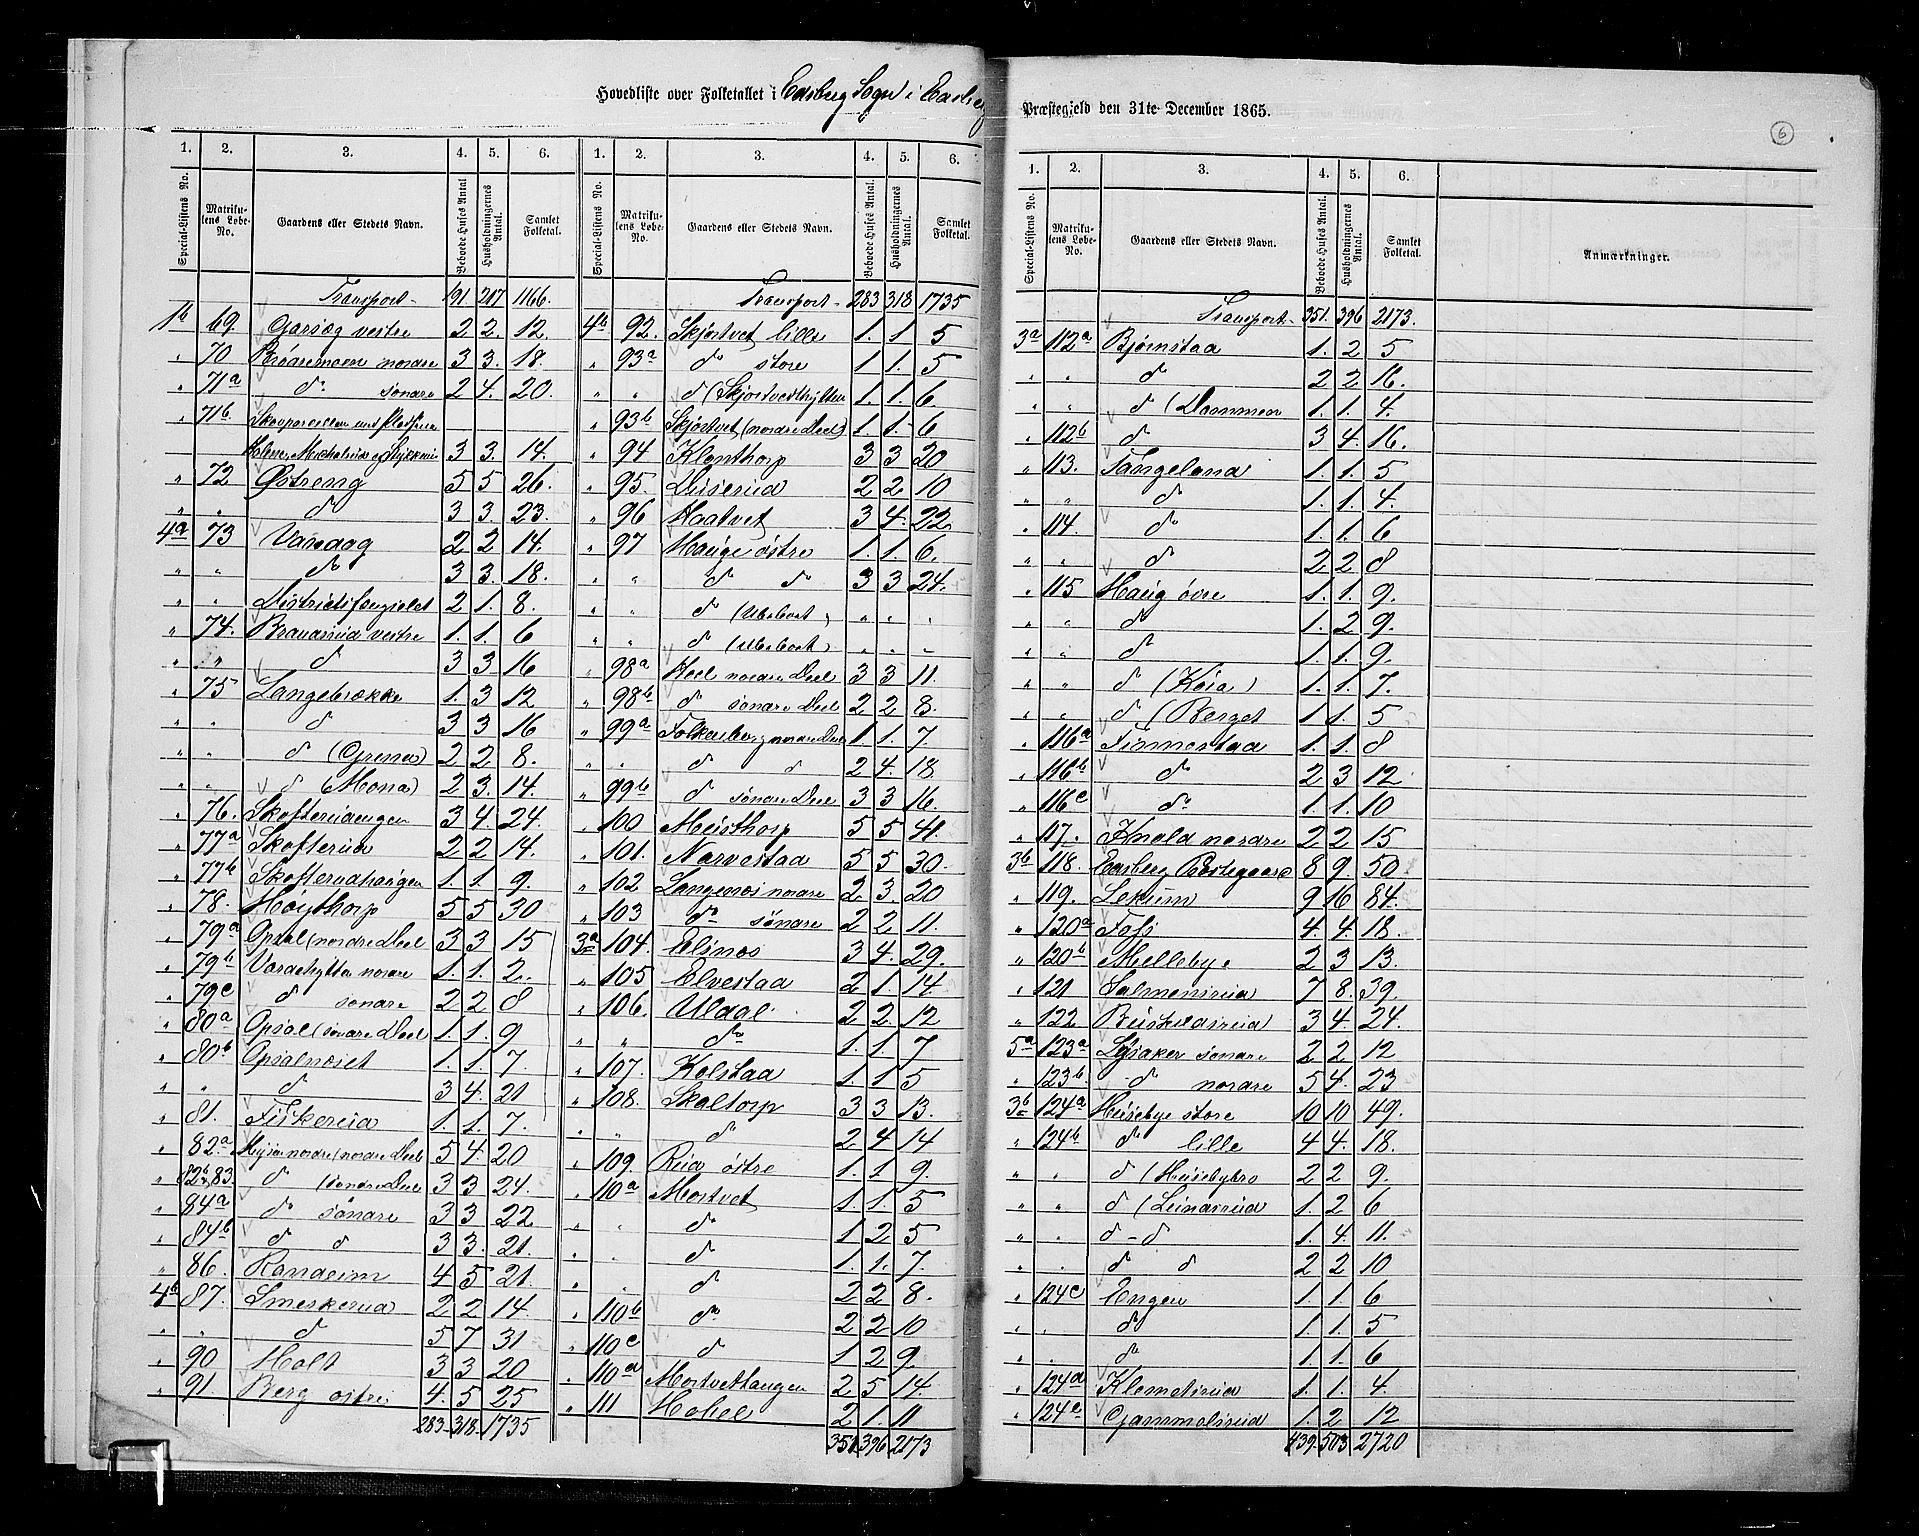 Hovedliste over Folketallet i Eidsberg Sogn i Eidsberg
Præstegjeld den 31te December 1865.
6
1. 2. 3. 4. 5. 6.
Special-Listens No. Matrikulens Løbe-No. Gaardens eller Stedets Navn. Beboede Huses Antal Husholdningernes Antal. Samlet Folketal.
Transport 191 217 1166.
1b 69. Garseg vestre 2 2. 12.
" 70 Broaremoen nordre 3 3. 18.
" 71a do søndre 2 4. 20.
" 71b. Skovparcellen med Pladsene
3 3. 14.
" 72 Østreng 5 5 26.
" " do 3 3. 23.
4a 73 Vandaag 2 2 14.
" " do 3 3. 18.
" " Districtsfængslet 2 1. 8.
" 74. Brandsrud vestre 1. 1. 6
" " do 3 3. 16
" 75 Langebrække 1. 3 12
" " do 3 3 16
" " do (Grena) 2 2 8.
" " do (Mona) 2 3. 14.
" 76. Skofterudengen 3 4. 24.
" 77a Skofterud 2 2 14.
" 77b Skofterudhaugen 1. 1. 9.
" 78. Høythorp 5 5 30
" 79a Opsal (nordre Deel 3 3 15
" 79b Vandehytten nordre 1. 1. 2.
" 79c do søndre 2 2 8
" 80a Opsal (søndre Deel 1. 1. 9
" 80b Opsalnæset 1. 1. 7.
" " do 3 4. 21
" 81. Fiskerud 1. 1. 7.
" 82a Mysen nordre (nordre Deel 5 4. 20
" 82b 83. do (søndre Deel 3 3 24.
" 84a do søndre 3 3 22
" 84b do do 3 3. 21.
" 86. Ramdeim 4 5 21.
4b 87. Smerkerud 2 2 14.
" " do 5 7 31
" 90 Holt 3 3 20
" 91 Berg østre 4. 5 25
283 318 1735
1. 2. 3. 4. 5. 6.
Special-Listens No. Matrikulens Løbe-No. Gaardens eller Stedets Navn. Beboede Huses Antal. Husholdningernes Antal. Samlet Folketal.
Transport 283 318 1735
4b 92. Skjørtvet lille 1. 1 5
" 93a do store 1 1. 5
" " do (Skjørtvedthytten 1. 1. 6.
" 93b Skjørtvet (nordre Deel) 1. 1. 6
" 94 Klenthorp 3 3 20
" 95. Duserud 2 2 10
" 96 Haatvet 3 4. 22
" 97 Hauge østre 1. 1. 6.
" " do do 3 3 24.
" " do (Ubeboet) " " "
" " do (Ubeboet) " " "
" 98a Heel nordre Deel 3 3 11.
" 98b do søndre Deel 2 2 8.
" 99a Folkensborg nordre Deel 1. 1. 7.
" " do d 2 4. 18
" 99b do søndre Deel 3 3 16.
" 100 Musthorp 5 5 41.
" 101. Narvestad 5 5 30.
" 102 Langenæs nordre 2 3. 20
" 103 do søndre 2 2 11.
3a 104. Elsnes 3 4. 29.
" 105 Elvestad 2 1. 14.
" 106. Uldal 2 2. 12
" " do 1. 1. 7
" 107. Kolstad 1. 1 5
" 108. Skaltorp 3 3 13.
" " do 2 4 14
" 109. Rud østre 1. 1. 9.
" 110a Mostvet 1 1. 5
" " do 1 2 5
" " do 1 1. 7.
" " do 2 2 8.
" 110b do 2 2 10
" 110c do 1 2 9.
" 110d Mostvethaugen 2 5 14.
" 111 Hobel 2 1. 11
351 396 2173
1. 2. 3. 4. 5. 6.
Special-Listens No. Matrikulens Løbe-No. Gaardens eller Stedets Navn. Beboede Huses Antal. Husholdningernes Antal. Samlet Folketal. Anmærkninger.
Transport 351. 396 2173.
3a 112a Bjørnstad 1. 2 5
" " do 2 2 16.
" " do (Dammen 1. 1. 4.
" 112b do 3 4. 16.
" 113. Tangeland 1. 1. 5
" " do 1. 1. 4.
" 114. do 1. 1. 6
" " do 2 2 8
" 115 Haug øvre 1. 1. 9.
" " do 1. 2 9.
" " do 1 1. 9.
" " do (Kria) 1. 1. 7.
" " do (Berget 1 1. 5
" 116a Finnestad 1. 1. 8
" 116b do 2 3 12
" 116c do 1. 1. 10
" 117. Knold nordre 2 2 15
3b 118. Eidsberg Præstegaard 8 9. 50
" 119. Lekum 9 16 84.
" 120a Foss 4. 4. 18.
" 120b Mellebye 2 3 13.
" 121 Salmonsrud 7 8. 39.
" 122 Buskuldsrud 3 4. 24.
5a 123a Lysaker søndre 2 2 12
" 123b. do nordre 5 4. 23
3b 124a Husebye store 10 10 49.
" 124b do lille 4 4. 18.
" " do (Husebybro 2 2 9.
" " do (Lundsrud 1. 2 6
" " do - do 1. 4. 11.
" " do do 2 2 10
" 124c Engen 1. 1. 6
" " do 1. 1. 5
" " do 1 1. 6
" 124d Klemetsrud 1. 1. 4.
" 124e Gammelsrud 1. 2 12
439 503 2720